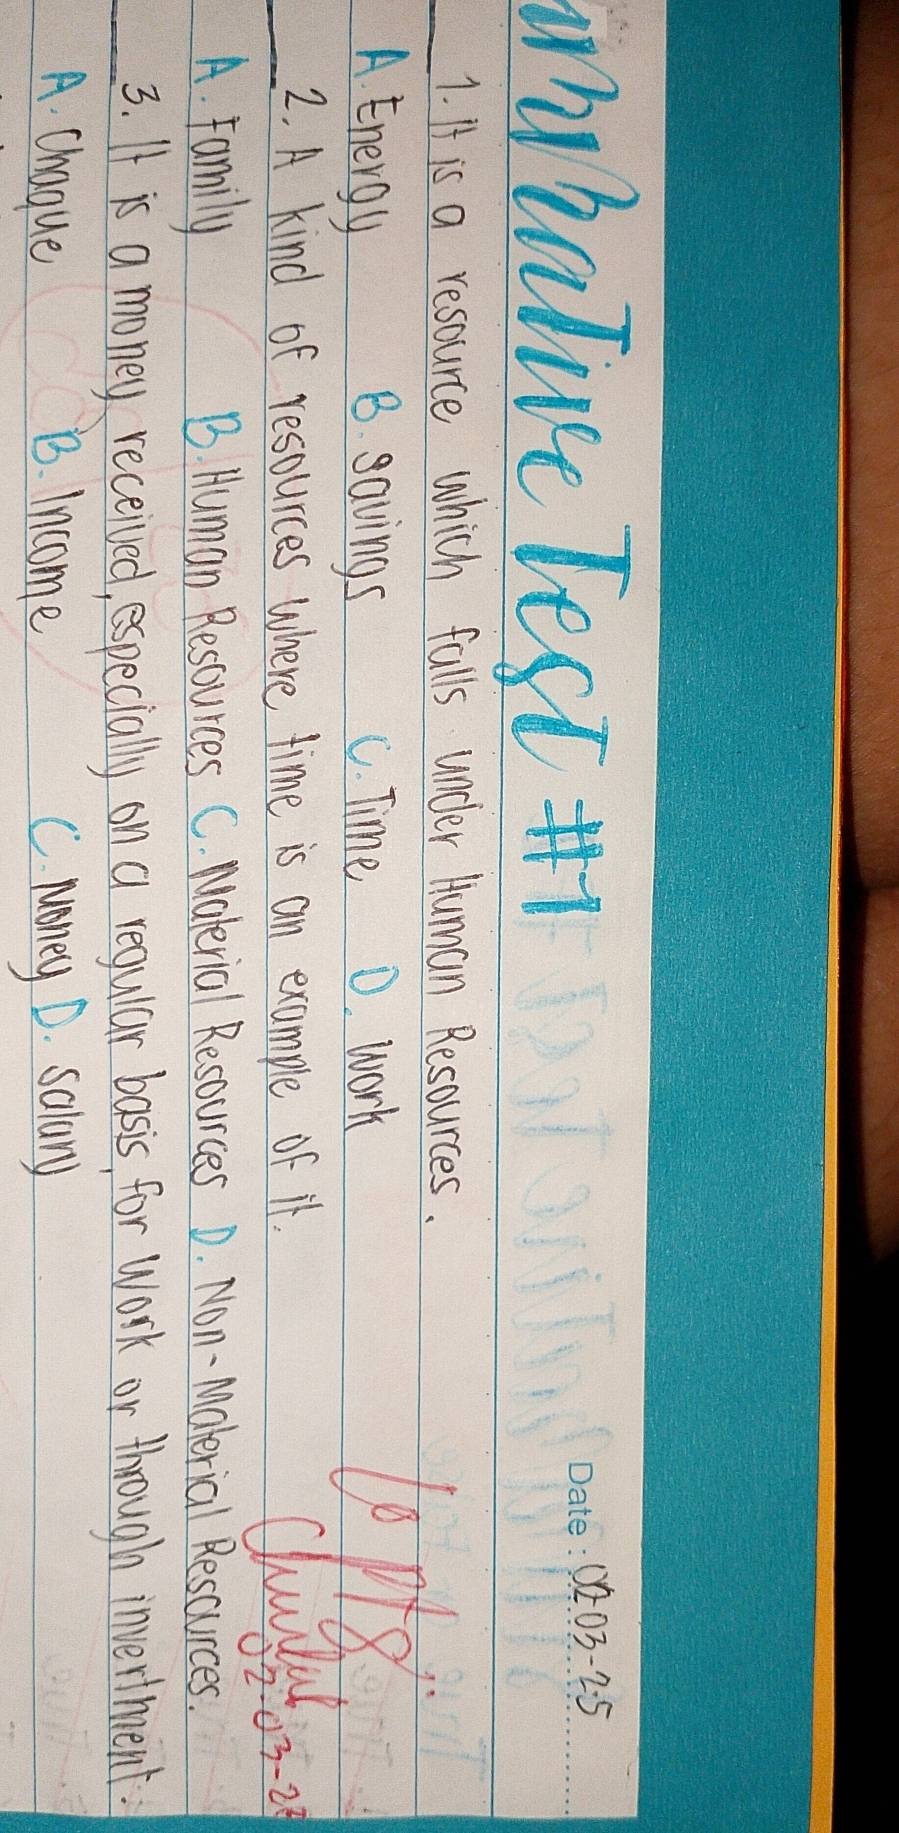 Date: 02-03-25
Test #1
1. It is a resource which falls under Human Resources.
A. Energy B. savings C. Time D. Work
2. A kind of resources where time is an example of it.
A. Family B. Human Resources C. Material Resources D. Non-Material Resources.
3. It is a money received, especially on a regular basis, for work or through invertment.
A. Chaque B. Income C. Money D. Salary
10 pts.
02-03-25